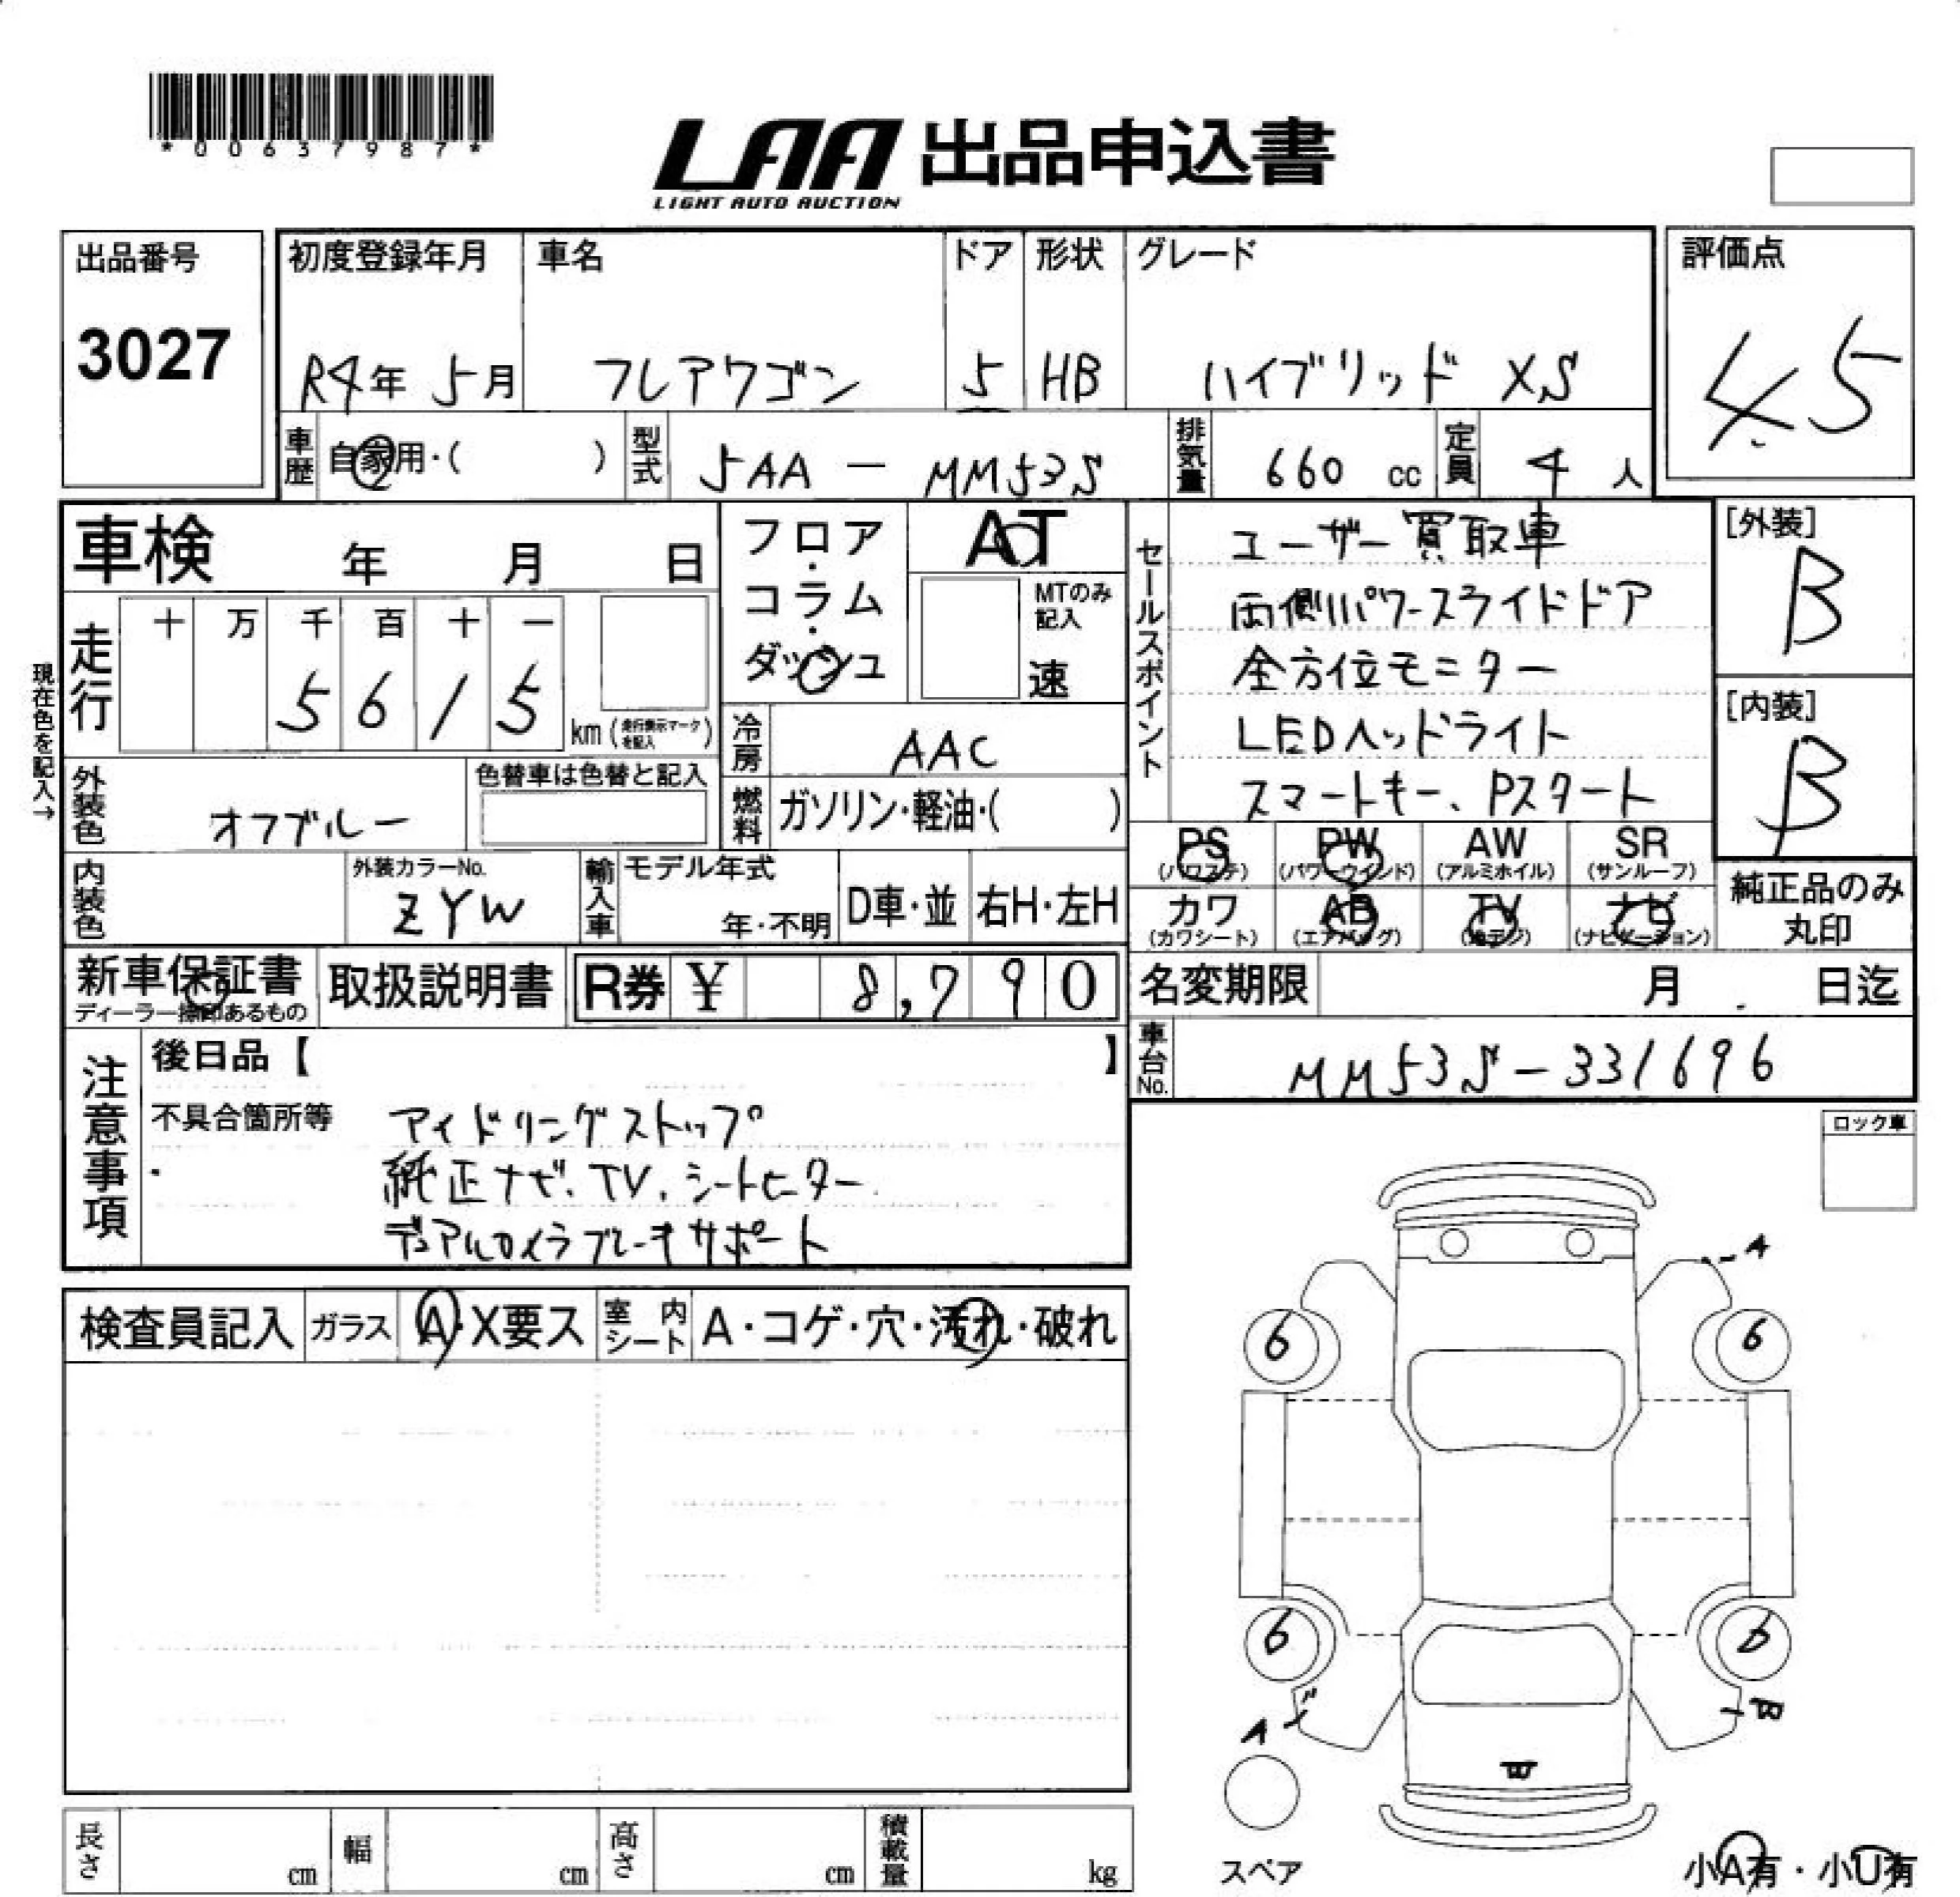 *00637987*
LAA 出品申込書
LIGHT AUTO AUCTION
出品番号
3027
初度登録年月
R4年 5月
車名
フレアワゴン
ドア
5
形状
HB
グレード
ハイブリッド XS
評価点
4.5
車歴
自家用・( )
型式
5AA - MM53S
排気量
660 cc
定員
4 人
車検 年 月 日
フロア・コラム・ダッシュ
AT
MTのみ記入
速
セールスポイント
ユーザー買取車
両側パワースライドドア
全方位モニター
LEDヘッドライト
スマートキー、Pスタート
[外装]
B
[内装]
B
現在色を記入→
走行
十 万 千 百 十 一
5 6 1 5
km (走行表示マークを記入)
冷房
AAC
外装色
オフブルー
色替車は色替と記入
燃料
ガソリン・軽油・( )
内装色
外装カラーNo.
ZYW
輸入車
モデル年式
年・不明
D車・並
右H・左H
PS (パワステ)
PW (パワーウインド)
AW (アルミホイル)
SR (サンルーフ)
カワ (カワシート)
AB (エアバッグ)
TV (地デジ)
ナビ (ナビゲーション)
純正品のみ丸印
新車保証書
取扱説明書
R券 ¥ 8,790
名変期限 月 日迄
車台No.
MM53S-331696
注意事項
後日品【 】
不具合箇所等
アイドリングストップ
純正ナビ、TV、シートヒーター
デュアルカメラブレーキサポート
ロック車
検査員記入
ガラス
A・X要ス
室内シート
A・コゲ・穴・汚れ・破れ
A
6
6
6
6
A
B
B
スペア
長さ cm
幅 cm
高さ cm
積載量 kg
小A有・小U有